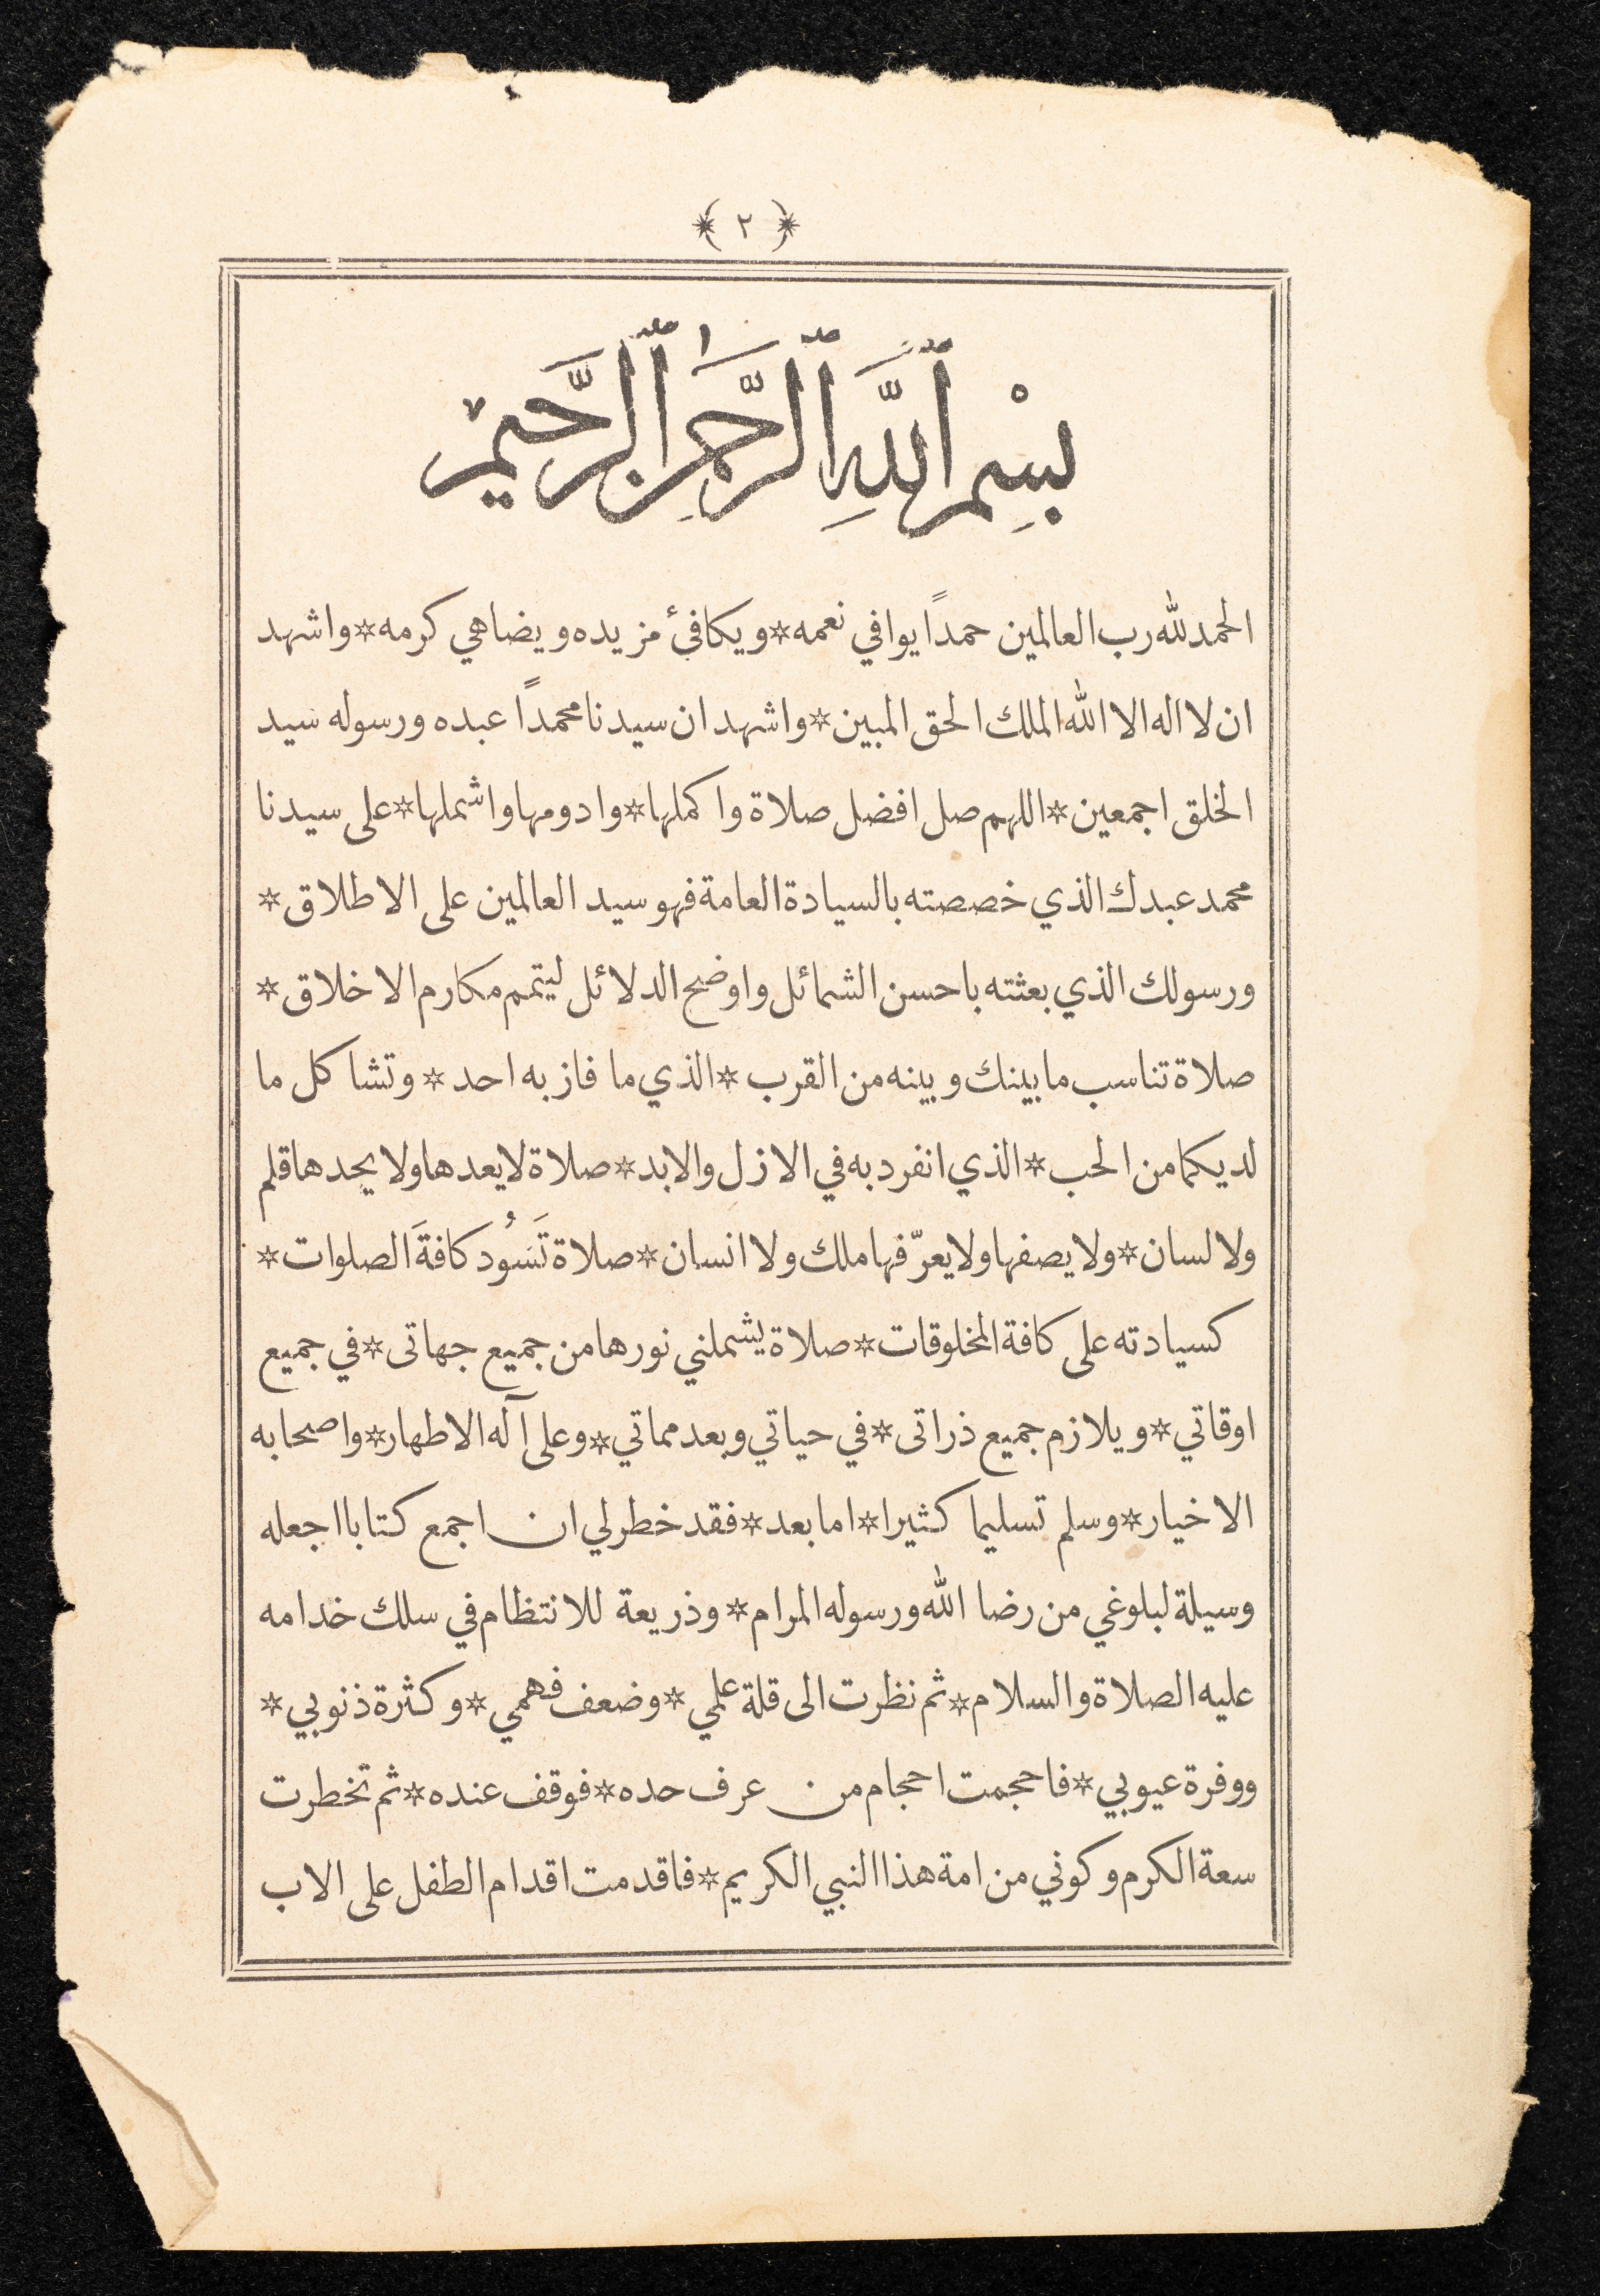 ﴿ ٢ ﴾
بِسْمِ ٱللَّهِ ٱلرَّحْمَٰنِ ٱلرَّحِيمِ
الحمد لله رب العالمين حمداً يوافي نعمه * ويكافئ مزيده ويضاهي كرمه * واشهد
ان لا اله الا الله الملك الحق المبين * واشهد ان سيدنا محمداً عبده ورسوله سيد
الخلق اجمعين * اللهم صل افضل صلاة واكملها * وادومها واشملها * على سيدنا
محمد عبدك الذي خصصته بالسيادة العامة فهو سيد العالمين على الاطلاق *
ورسولك الذي بعثته باحسن الشمائل واوضح الدلائل ليتمم مكارم الاخلاق *
صلاة تناسب ما بينك وبينه من القرب * الذي ما فاز به احد * وتشاكل ما
لديكما من الحب * الذي انفرد به في الازل والابد * صلاة لا يعدها ولا يحدها قلم
ولا لسان * ولا يصفها ولا يعرّفها ملك ولا انسان * صلاة تَسُود كافةَ الصلوات *
كسيادته على كافة المخلوقات * صلاة يشملني نورها من جميع جهاتى * في جميع
اوقاتي * ويلازم جميع ذراتى * في حياتي وبعد مماتي * وعلى آله الاطهار * واصحابه
الاخيار * وسلم تسليما كثيرا * اما بعد * فقد خطر لي ان اجمع كتابا اجعله
وسيلة لبلوغي من رضا الله ورسوله المرام * وذريعة للانتظام في سلك خدامه
عليه الصلاة والسلام * ثم نظرت الى قلة علمي * وضعف فهمي * وكثرة ذنوبي *
ووفرة عيوبي * فاحجمت احجام من عرف حده * فوقف عنده * ثم تخطرت
سعة الكرم وكوني من امة هذا النبي الكريم * فاقدمت اقدام الطفل على الاب